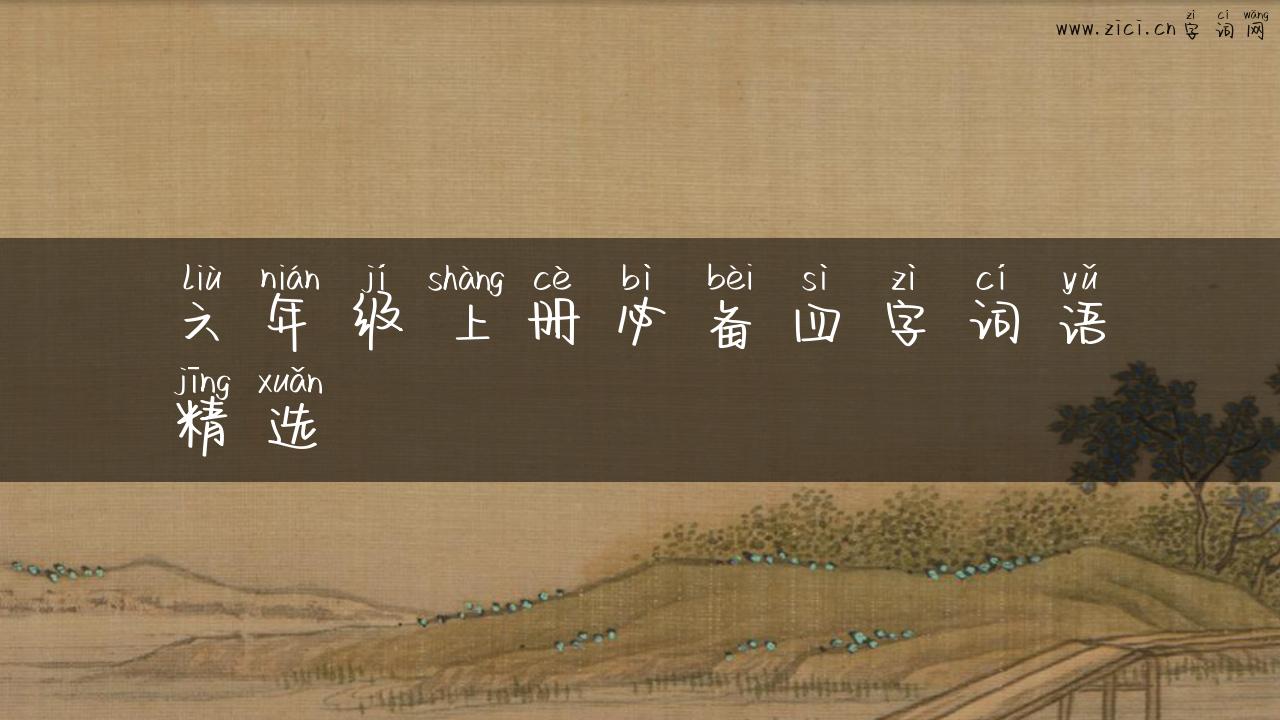 zì cí wǎng
www.zici.cn字词网
liù nián jí shàng cè bì bèi sì zì cí yǔ
六年级上册必备四字词语
jīng xuǎn
精选